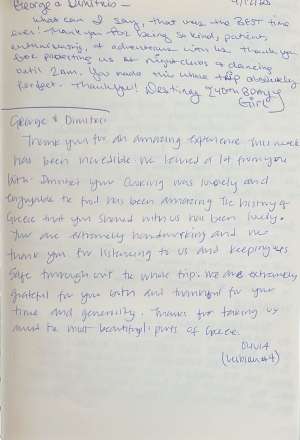 George & Dimitris - 
what can I say, that was the BEST time
ever! Thank you for being so kind, patient,
enthusiastic, & adventurous with us. Thank you
for protecting us at nightclubs & dancing
until 2am. You made this whole trip absolutely
Thank you! Destiny
Girl
George & Dimitri
Thank you for an amazing experience this week
has been incredible we learned a lot from you
both. Dimitri your cooking was lovely and
enjoyable the food has been amazing. The history of
Greece that you shared with us has been lovely.
You are extremely hardworking and we
thank you for listening to us and keeping us
safe throughout the whole trip. We are extremely
grateful for you both and thankful for your
time and generosity. Thanks for taking us
to the most beautiful parts of Greece.
Olivia
(Lesbian #4)